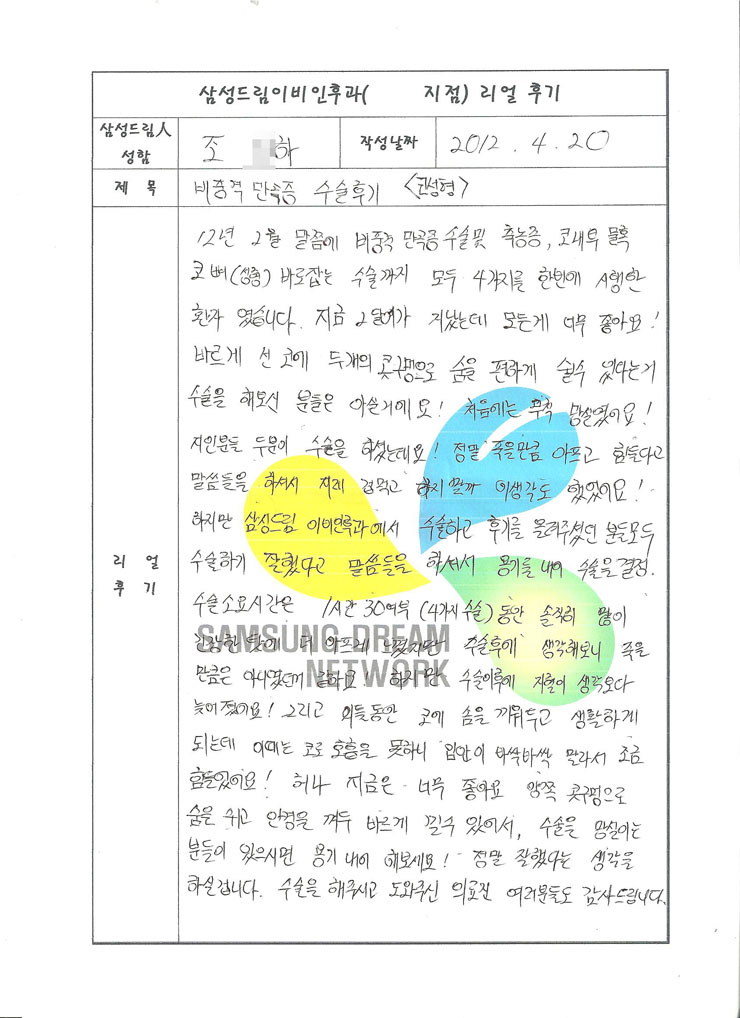 삼성드림이비인후과( 지점) 리얼 후기
삼성드림人 성함
조 하
작성날짜
2012. 4. 20
제 목
비중격 만곡증 수술후기 <코성형>
리 얼
후 기
12년 2월 말쯤에 비중격 만곡증 수술및 축농증, 코내부 물혹
코뼈(성형) 바로잡는 수술까지 모두 4가지를 한번에 시행한
환자 였습니다. 지금 2달여가 지났는데 모든게 너무 좋아요!
바르게 선 코에 두개의 콧구멍으로 숨을 편하게 쉴수 있다는거
수술을 해보신 분들은 아실거에요! 처음에는 무척 망설였어요!
지인분들 두분이 수술을 하셨는데요! 정말 죽을만큼 아프고 힘들다고
말씀들을 하셔서 지레 겁먹고 하지말까 이생각도 했었어요!
하지만 삼성드림 이비인후과에서 수술하고 후기를 올려주셨던 분들모두
수술하기 잘했다고 말씀들을 하셔서 용기를 내어 수술을 결정.
수술 소요시간은 1시간 30여분 (4가지 수술) 동안 솔직히 많이
긴장한 탓에 더 아프게 느꼈지만 수술후에 생각해보니 죽을
만큼은 아니였던거 같아요! 하지만 수술이후에 지혈이 생각보다
늦어졌어요! 그리고 이틀동안 코에 솜을 끼워두고 생활하게
되는데 이때는 코로 호흡을 못하니 입안이 바싹바싹 말라서 조금
힘들었어요! 허나 지금은 너무 좋아요 양쪽 콧구멍으로
숨을 쉬고 안경을 껴두 바르게 낄수 있어서, 수술을 망설이는
분들이 있으시면 용기 내어 해보세요! 정말 잘했다는 생각을
하실겁니다. 수술을 해주시고 도와주신 의료진 여러분들도 감사드립니다.
SAMSUNG DREAM
NETWORK